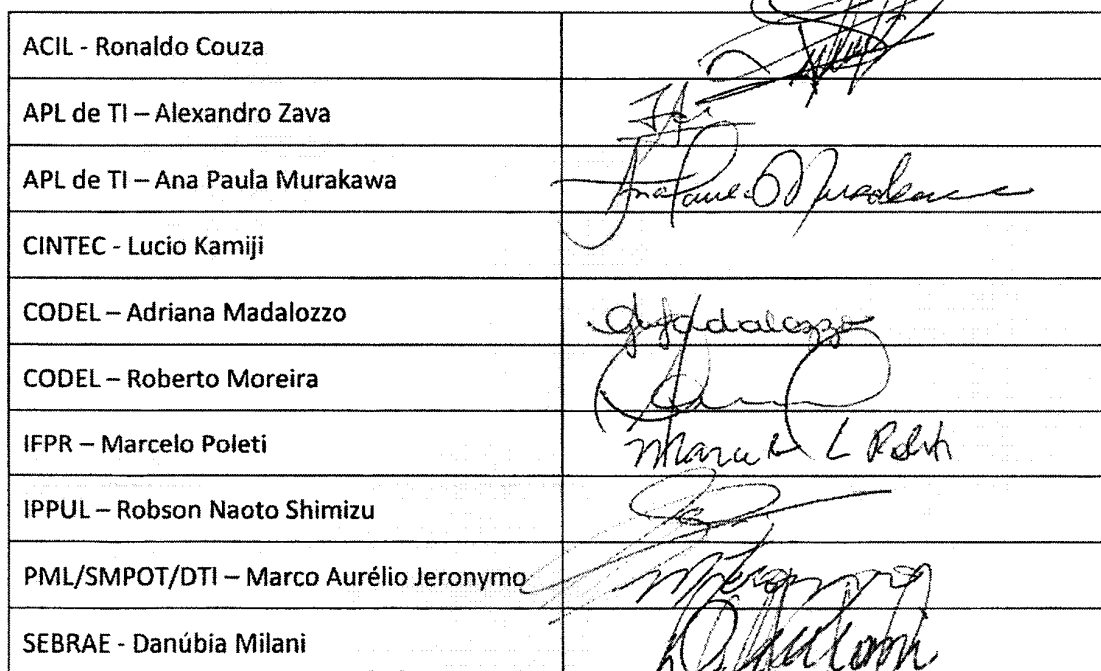 ACIL - Ronaldo Couza
APL de TI – Alexandro Zava
APL de TI – Ana Paula Murakawa Ana Paula Murakawa
CINTEC - Lucio Kamiji
CODEL – Adriana Madalozzo
CODEL – Roberto Moreira
IFPR – Marcelo Poleti
IPPUL – Robson Naoto Shimizu
PML/SMPOT/DTI – Marco Aurélio Jeronymo
SEBRAE - Danúbia Milani